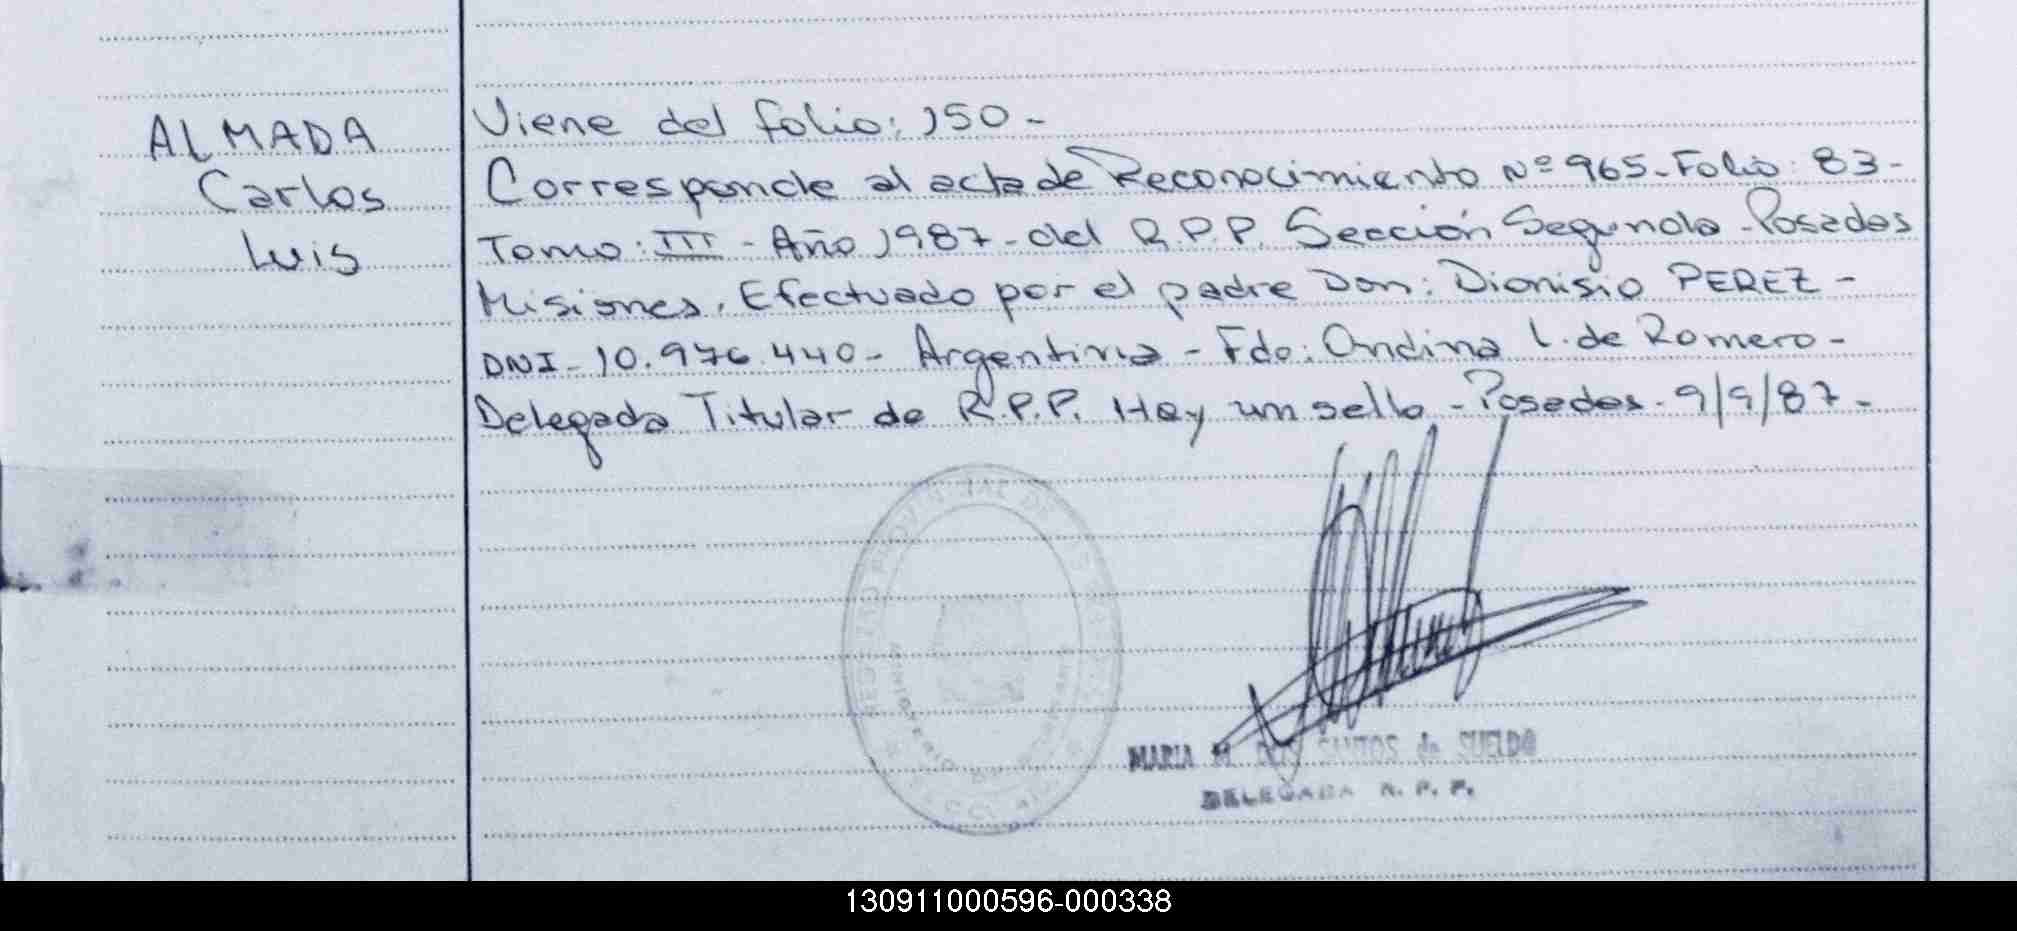 ALMADA
Carlos
Luis
Viene del folio: 150-
Corresponde al acta de Reconocimiento Nº 965-Folio: 83-
Tomo: III - Año 1987-del R.P.P. Sección Segunda-Posadas
Misiones. Efectuado por el padre Don: Dionisio PEREZ-
DNI-10.976.440- Argentina-Fdo: Ondina L. de Romero-
Delegada Titular de R.P.P. Hay un sello-Posadas-9/9/87-
MARIA M. DOS SANTOS de SUELDO
DELEGADA R. P. P.
130911000596-000338